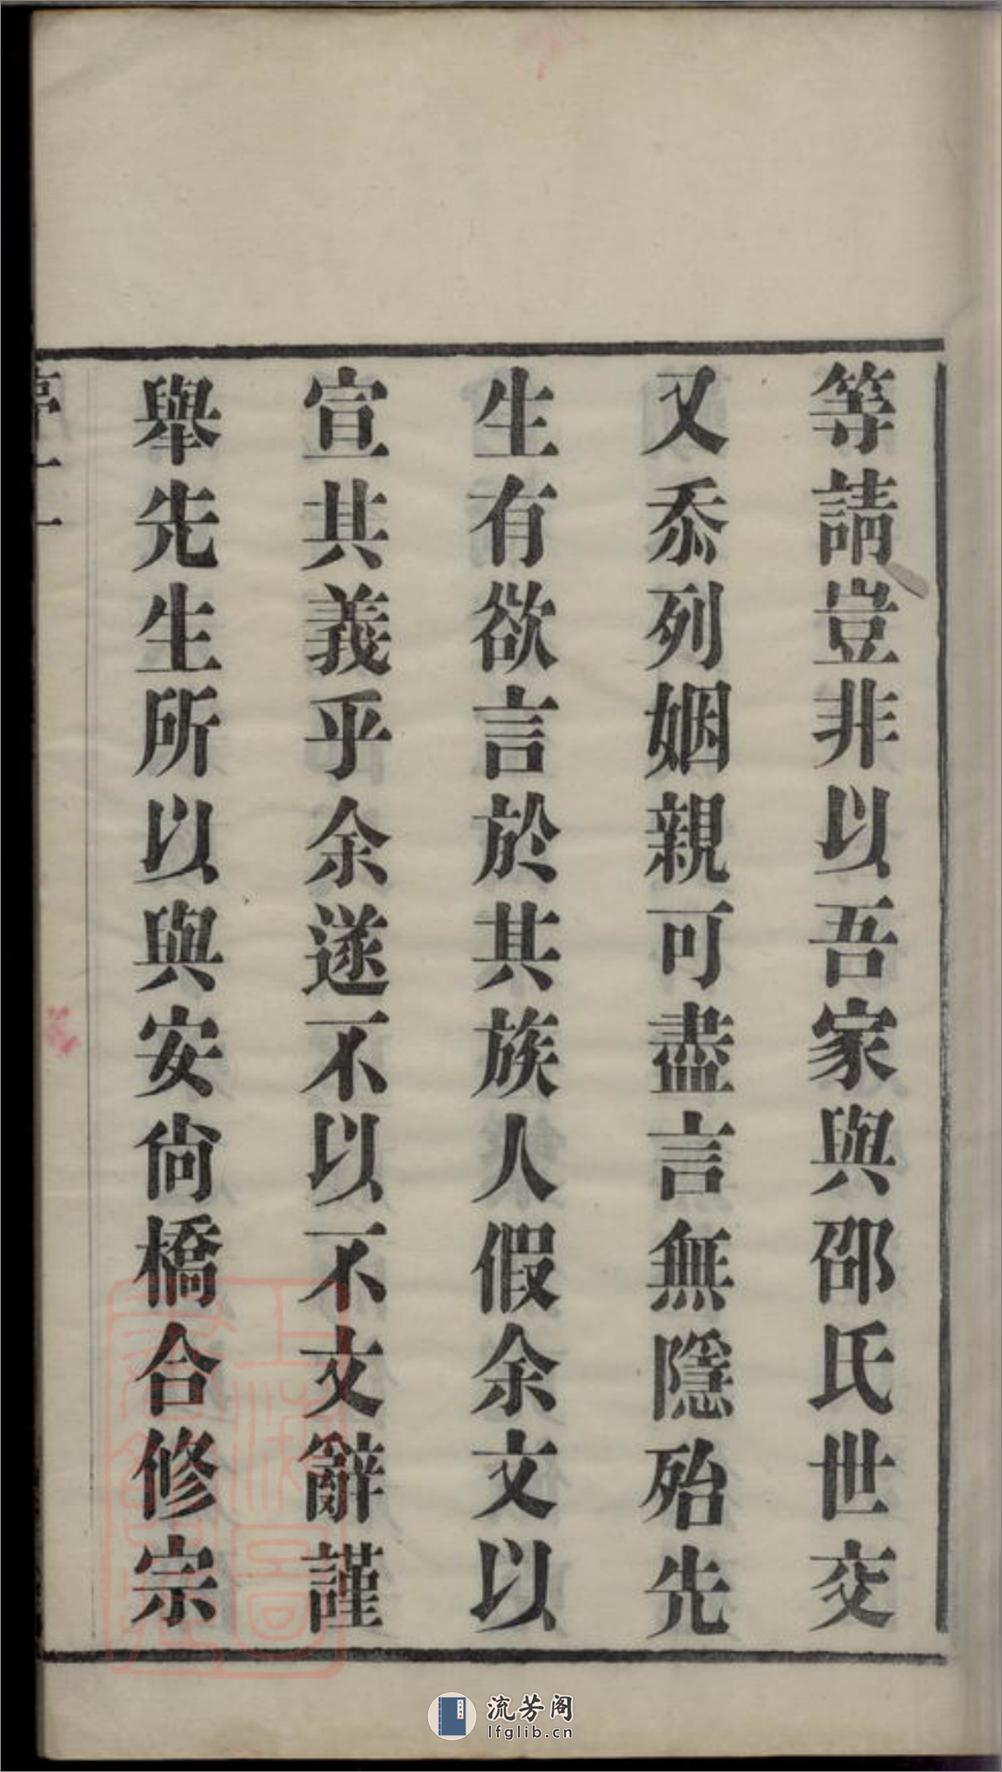 等請豈非以吾家與邵氏世交
又忝列姻親可盡言無隱殆先
生有欲言於其族人假余文以
宣其義乎余遂不以不文辭謹
舉先生所以與安尙橋合修宗
流芳阁
lfglib.cn